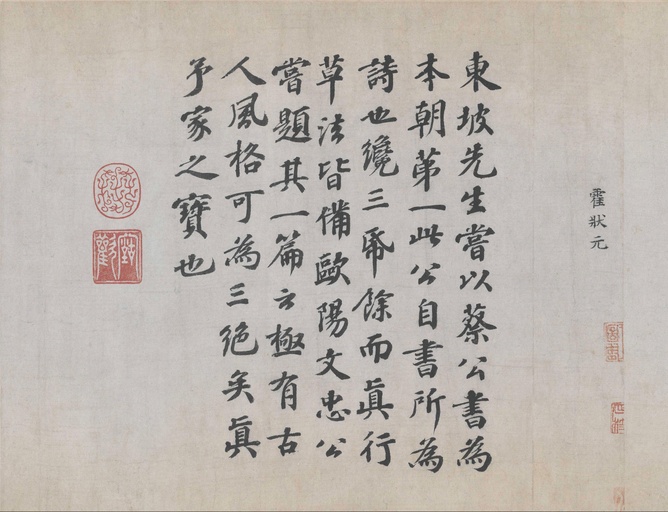 霍狀元
東坡先生嘗以蔡公書為
本朝苐一此公自書所為
詩也纔三帋餘而真行
草法皆備歐陽文忠公
嘗題其一篇云極有古
人風格可為三絕矣真
予家之寶也